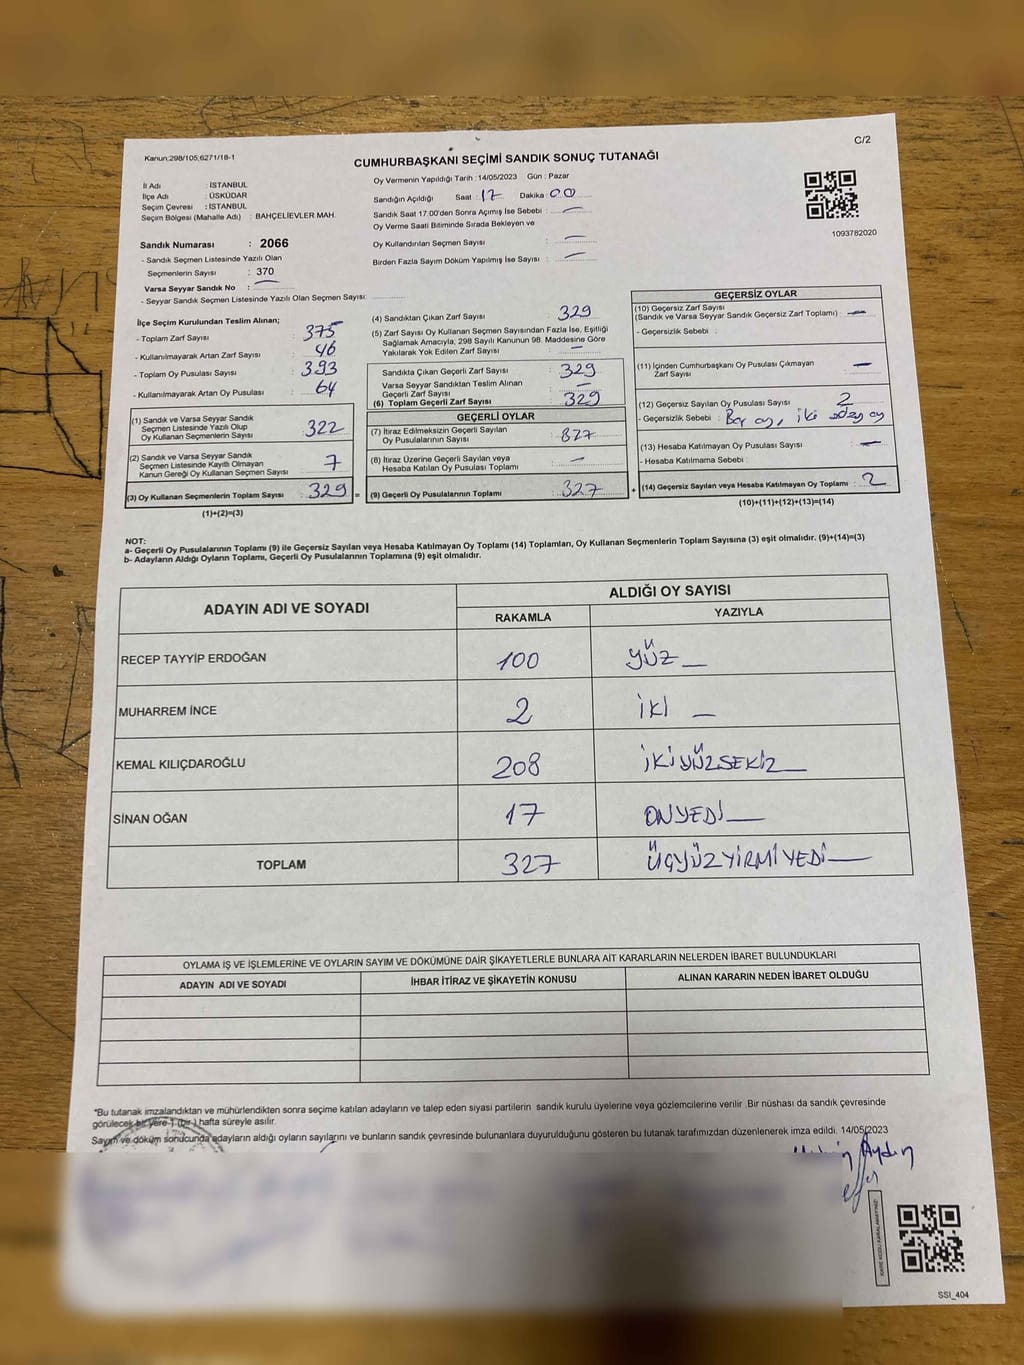 C/2
Kanun;298/105,6271/18-1
CUMHURBAŞKANI SEÇİMİ SANDIK SONUÇ TUTANAĞI
İl Adı : İSTANBUL
İlçe Adı : ÜSKÜDAR
Seçim Çevresi : İSTANBUL
Seçim Bölgesi (Mahalle Adı) : BAHÇELİEVLER MAH.
Sandık Numarası : 2066
- Sandık Seçmen Listesinde Yazılı Olan
Seçmenlerin Sayısı : 370
Varsa Seyyar Sandık No : —
- Seyyar Sandık Seçmen Listesinde Yazılı Olan Seçmen Sayısı:
Oy Vermenin Yapıldığı Tarih : 14/05/2023 Gün : Pazar
Sandığın Açıldığı Saat : 17 Dakika : 00
Sandık Saat 17.00'den Sonra Açımış İse Sebebi : —
Oy Verme Saati Bitiminde Sırada Bekleyen ve
Oy Kullandırılan Seçmen Sayısı : —
Birden Fazla Sayım Döküm Yapılmış İse Sayısı : —
1093782020
İlçe Seçim Kurulundan Teslim Alınan;
- Toplam Zarf Sayısı : 375
- Kullanılmayarak Artan Zarf Sayısı : 46
- Toplam Oy Pusulası Sayısı : 393
- Kullanılmayarak Artan Oy Pusulası : 64
(1) Sandık ve Varsa Seyyar Sandık
Seçmen Listesinde Yazılı Olup
Oy Kullanan Seçmenlerin Sayısı : 322
(2) Sandık ve Varsa Seyyar Sandık
Seçmen Listesinde Kayıtlı Olmayan
Kanun Gereği Oy Kullanan Seçmen Sayısı : 7
(3) Oy Kullanan Seçmenlerin Toplam Sayısı : 329 =
(1)+(2)=(3)
(4) Sandıktan Çıkan Zarf Sayısı : 329
(5) Zarf Sayısı Oy Kullanan Seçmen Sayısından Fazla İse, Eşitliği
Sağlamak Amacıyla, 298 Sayılı Kanunun 98. Maddesine Göre
Yakılarak Yok Edilen Zarf Sayısı : —
Sandıkta Çıkan Geçerli Zarf Sayısı : 329
Varsa Seyyar Sandıktan Teslim Alınan
Geçerli Zarf Sayısı : —
(6) Toplam Geçerli Zarf Sayısı : 329
GEÇERLİ OYLAR
(7) İtiraz Edilmeksizin Geçerli Sayılan
Oy Pusulalarının Sayısı : 327
(8) İtiraz Üzerine Geçerli Sayılan veya
Hesaba Katılan Oy Pusulası Toplamı : —
(9) Geçerli Oy Pusulalarının Toplamı : 327 +
GEÇERSİZ OYLAR
(10) Geçersiz Zarf Sayısı
(Sandık ve Varsa Seyyar Sandık Geçersiz Zarf Toplamı) : —
- Geçersizlik Sebebi :
(11) İçinden Cumhurbaşkanı Oy Pusulası Çıkmayan
Zarf Sayısı : —
(12) Geçersiz Sayılan Oy Pusulası Sayısı : 2
- Geçersizlik Sebebi : Boş oy, iki
(13) Hesaba Katılmayan Oy Pusulası Sayısı : —
- Hesaba Katılmama Sebebi :
(14) Geçersiz Sayılan veya Hesaba Katılmayan Oy Toplamı : 2
(10)+(11)+(12)+(13)=(14)
NOT:
a- Geçerli Oy Pusulalarının Toplamı (9) ile Geçersiz Sayılan veya Hesaba Katılmayan Oy Toplamı (14) Toplamları, Oy Kullanan Seçmenlerin Toplam Sayısına (3) eşit olmalıdır. (9)+(14)=(3)
b- Adayların Aldığı Oyların Toplamı, Geçerli Oy Pusulalarının Toplamına (9) eşit olmalıdır.
ADAYIN ADI VE SOYADI
ALDIĞI OY SAYISI
RAKAMLA YAZIYLA
RECEP TAYYİP ERDOĞAN 100 YÜZ —
MUHARREM İNCE 2 İKİ —
KEMAL KILIÇDAROĞLU 208 İKİYÜZSEKİZ —
SİNAN OĞAN 17 ONYEDİ —
TOPLAM 327 ÜÇYÜZYİRMİYEDİ —
OYLAMA İŞ VE İŞLEMLERİNE VE OYLARIN SAYIM VE DÖKÜMÜNE DAİR ŞİKAYETLERLE BUNLARA AİT KARARLARIN NELERDEN İBARET BULUNDUKLARI
ADAYIN ADI VE SOYADI İHBAR İTİRAZ VE ŞİKAYETİN KONUSU ALINAN KARARIN NEDEN İBARET OLDUĞU
*Bu tutanak imzalandıktan ve mühürlendikten sonra seçime katılan adayların ve talep eden siyasi partilerin sandık kurulu üyelerine veya gözlemcilerine verilir .Bir nüshası da sandık çevresinde
görülecek bir yere 1 (bir ) hafta süreyle asılır.
Sayım ve döküm sonucunda adayların aldığı oyların sayılarını ve bunların sandık çevresinde bulunanlara duyurulduğunu gösteren bu tutanak tarafımızdan düzenlenerek imza edildi. 14/05/2023
Aydın
KARE KODU KARALAMAYINIZ
SSI_404